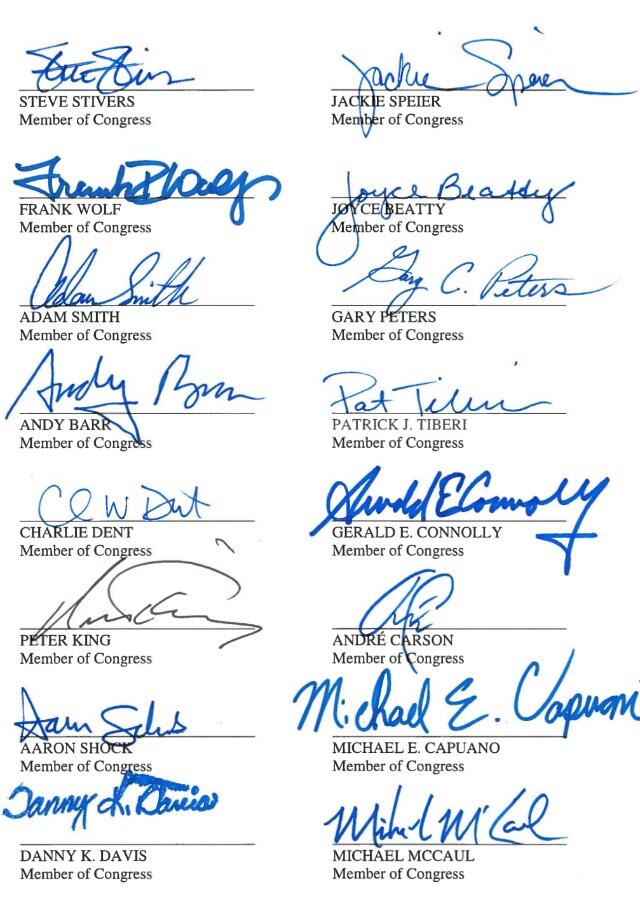 Steve Stivers
STEVE STIVERS
Member of Congress
Jackie Speier
JACKIE SPEIER
Member of Congress
Frank R Wolf
FRANK WOLF
Member of Congress
Joyce Beatty
JOYCE BEATTY
Member of Congress
Adam Smith
ADAM SMITH
Member of Congress
Gary C. Peters
GARY PETERS
Member of Congress
Andy Barr
ANDY BARR
Member of Congress
Pat Tiberi
PATRICK J. TIBERI
Member of Congress
Ch W Dent
CHARLIE DENT
Member of Congress
Gerald E Connolly
GERALD E. CONNOLLY
Member of Congress
PETER KING
Member of Congress
ANDRÉ CARSON
Member of Congress
Aaron Schock
AARON SHOCK
Member of Congress
Michael E. Capuano
MICHAEL E. CAPUANO
Member of Congress
Danny K. Davis
DANNY K. DAVIS
Member of Congress
Michael McCaul
MICHAEL MCCAUL
Member of Congress